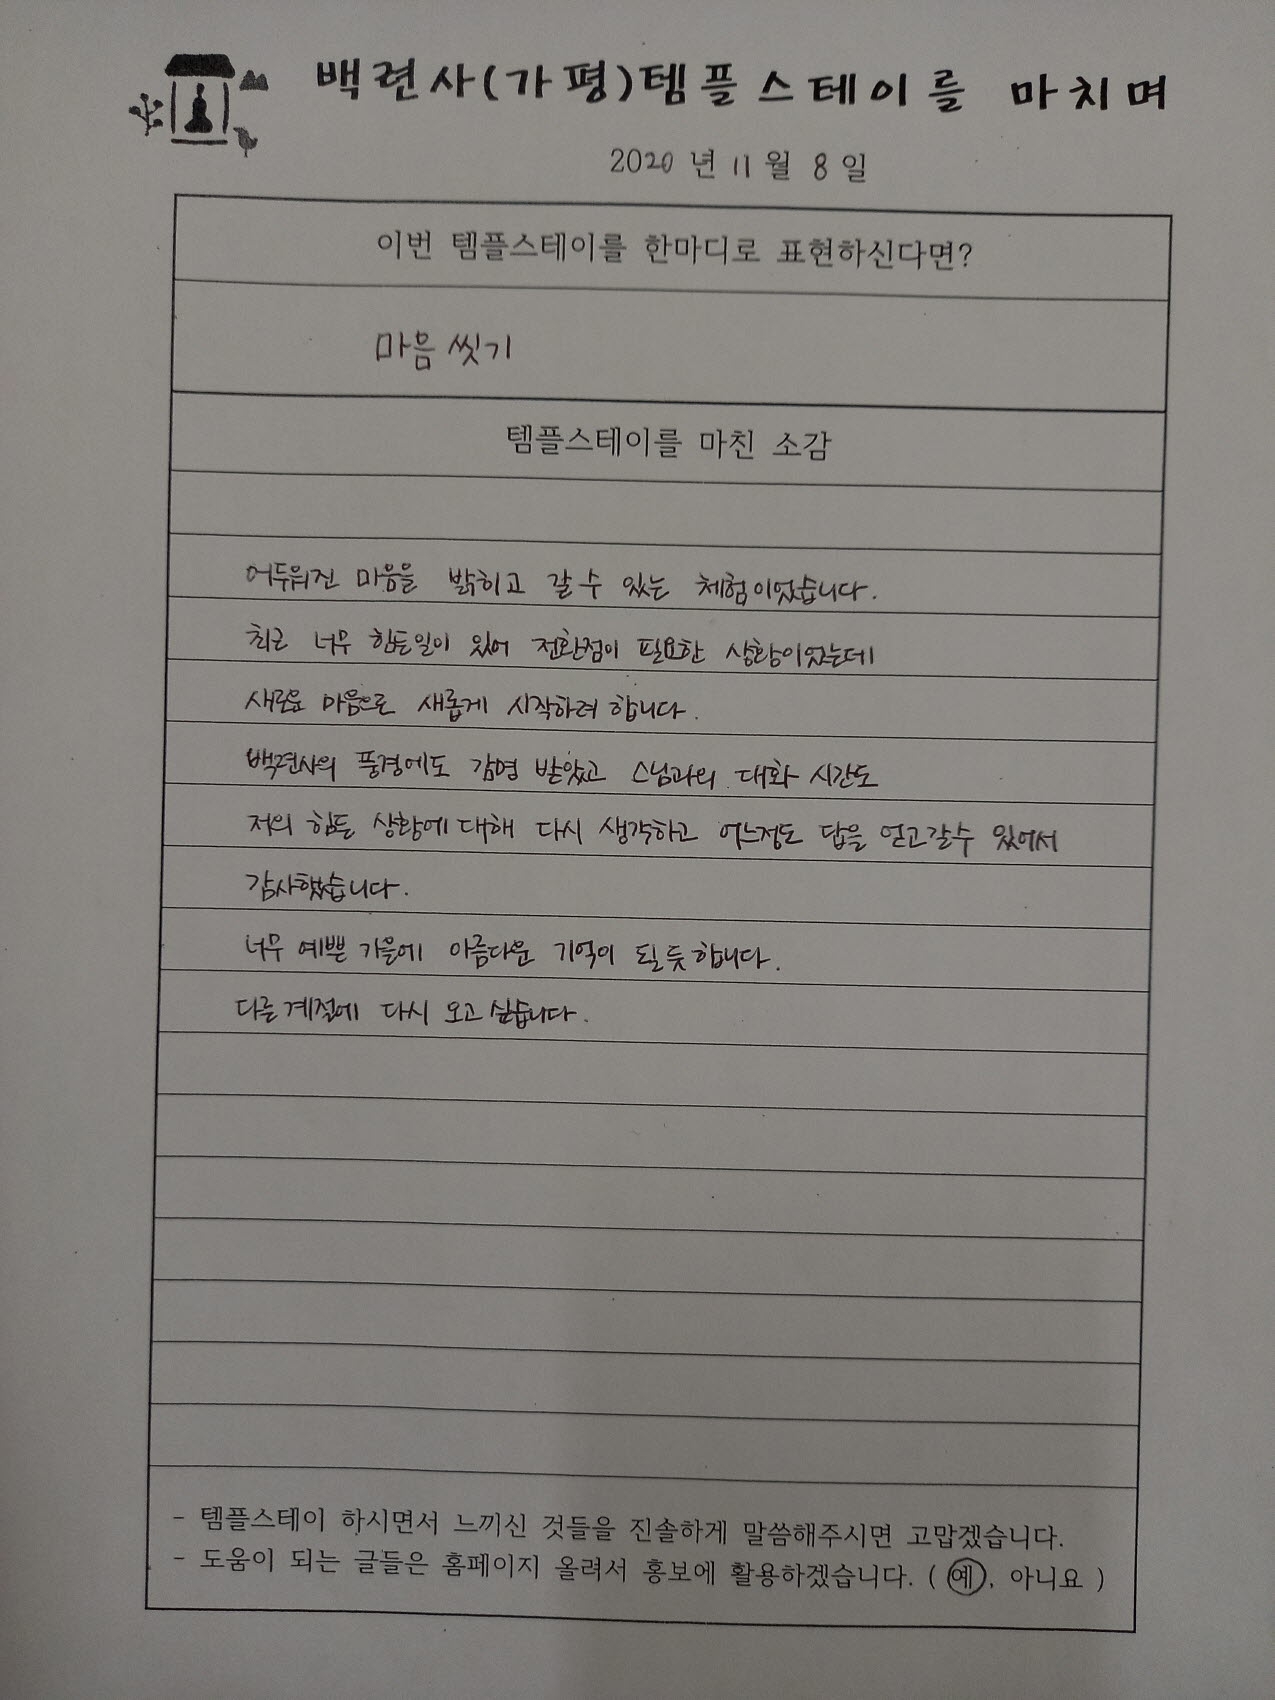 백련사(가평)템플스테이를 마치며
2020 년 11 월 8 일
이번 템플스테이를 한마디로 표현하신다면?
마음 씻기
템플스테이를 마친 소감
어두워진 마음을 밝히고 갈 수 있는 체험이었습니다.
최근 너무 힘든일이 있어 전환점이 필요한 상황이었는데
새로운 마음으로 새롭게 시작하려 합니다.
백련사의 풍경에도 감명 받았고 스님과의 대화 시간도
저의 힘든 상황에 대해 다시 생각하고 어느정도 답을 얻고갈수 있어서
감사했습니다.
너무 예쁜 가을에 아름다운 기억이 될듯 합니다.
다른 계절에 다시 오고 싶습니다.
- 템플스테이 하시면서 느끼신 것들을 진솔하게 말씀해주시면 고맙겠습니다.
- 도움이 되는 글들은 홈페이지 올려서 홍보에 활용하겠습니다. ( 예, 아니요 )